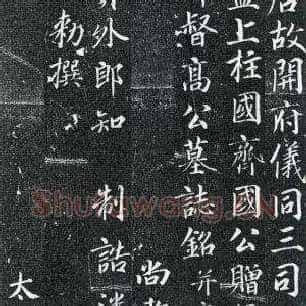 故開府儀同三司
監上柱國齊國公贈
督高公墓誌銘并
尚
外郎知制誥
勑撰
太
Shufawang.CN